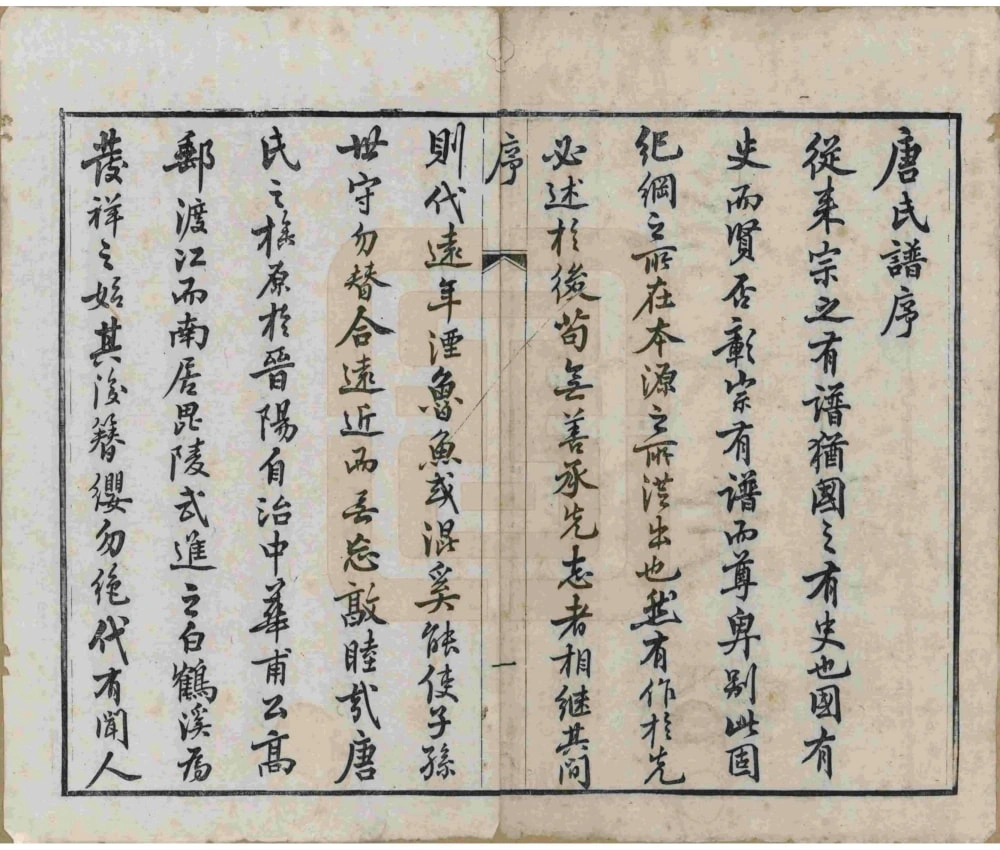 唐氏譜序
從來宗之有譜猶國之有史也國有
史而賢否彰宗有譜而尊卑別此固
紀綱之所在本源之所洪出也然有作於先
必述於後苟無善承先志者相継其間
序
一
則代遠年湮魯魚或混奚能使子孫
世守勿替合遠近而無忘敦睦哉唐
氏之族原於晉陽自治中華甫公扈
郵渡江而南居毘陵武進之白鶴溪為
發祥之始其後簪纓勿絶代有聞人